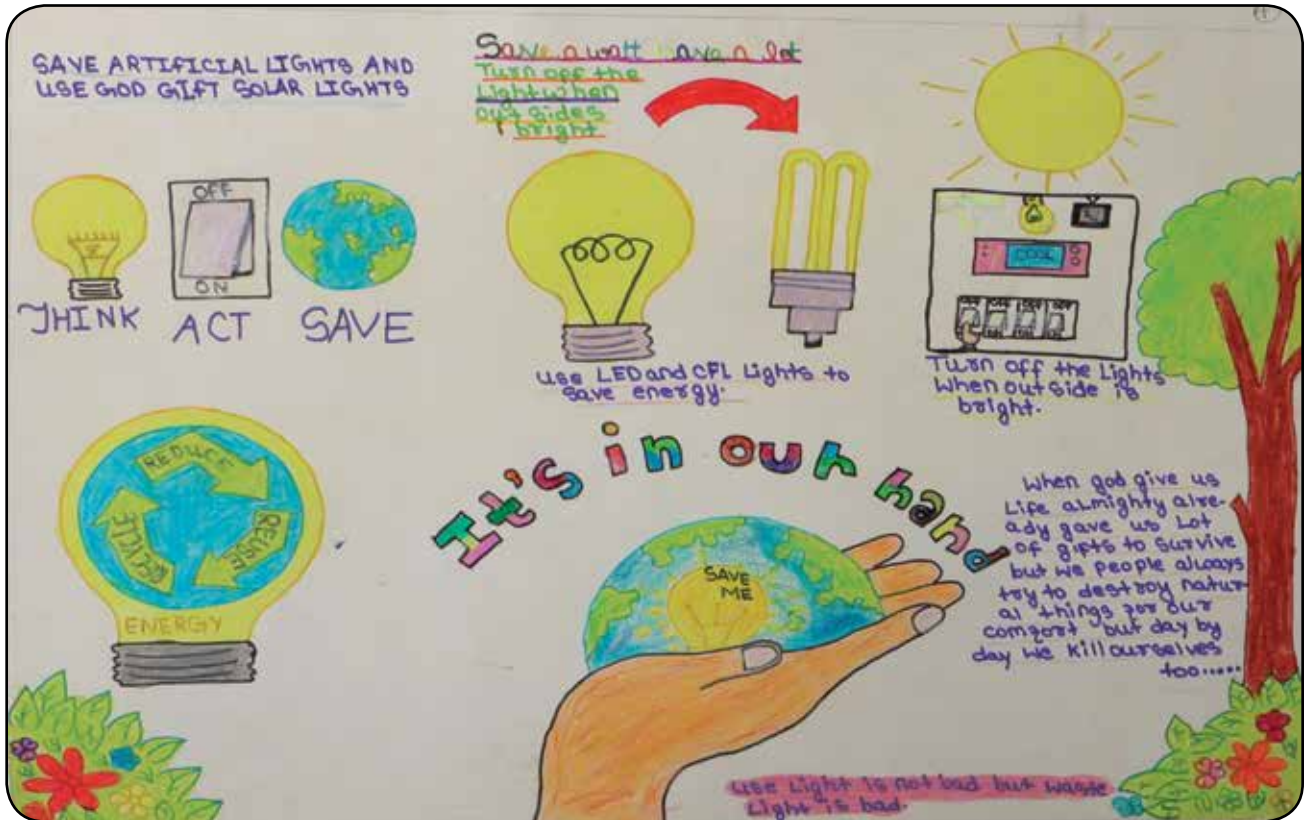 SAVE ARTIFICIAL LIGHTS AND
USE GOD GIFT SOLAR LIGHTS
Save a watt save a lot
Turn off the
Light when
out sides
bright
OFF
ON
THINK
ACT
SAVE
use LED and CFL Lights to
save energy.
COOL
OFF OFF OFF OFF
ON ON ON
Turn off the Lights
when out side is
bright.
REDUCE
REUSE
RECYCLE
ENERGY
It's in our hand
SAVE
ME
When god give us
Life almighty alre-
ady gave us Lot
of gifts to survive
but we people always
try to destroy natur-
al things for our
comfort but day by
day we kill ourselves
too.....
use Light is not bad but waste
Light is bad.